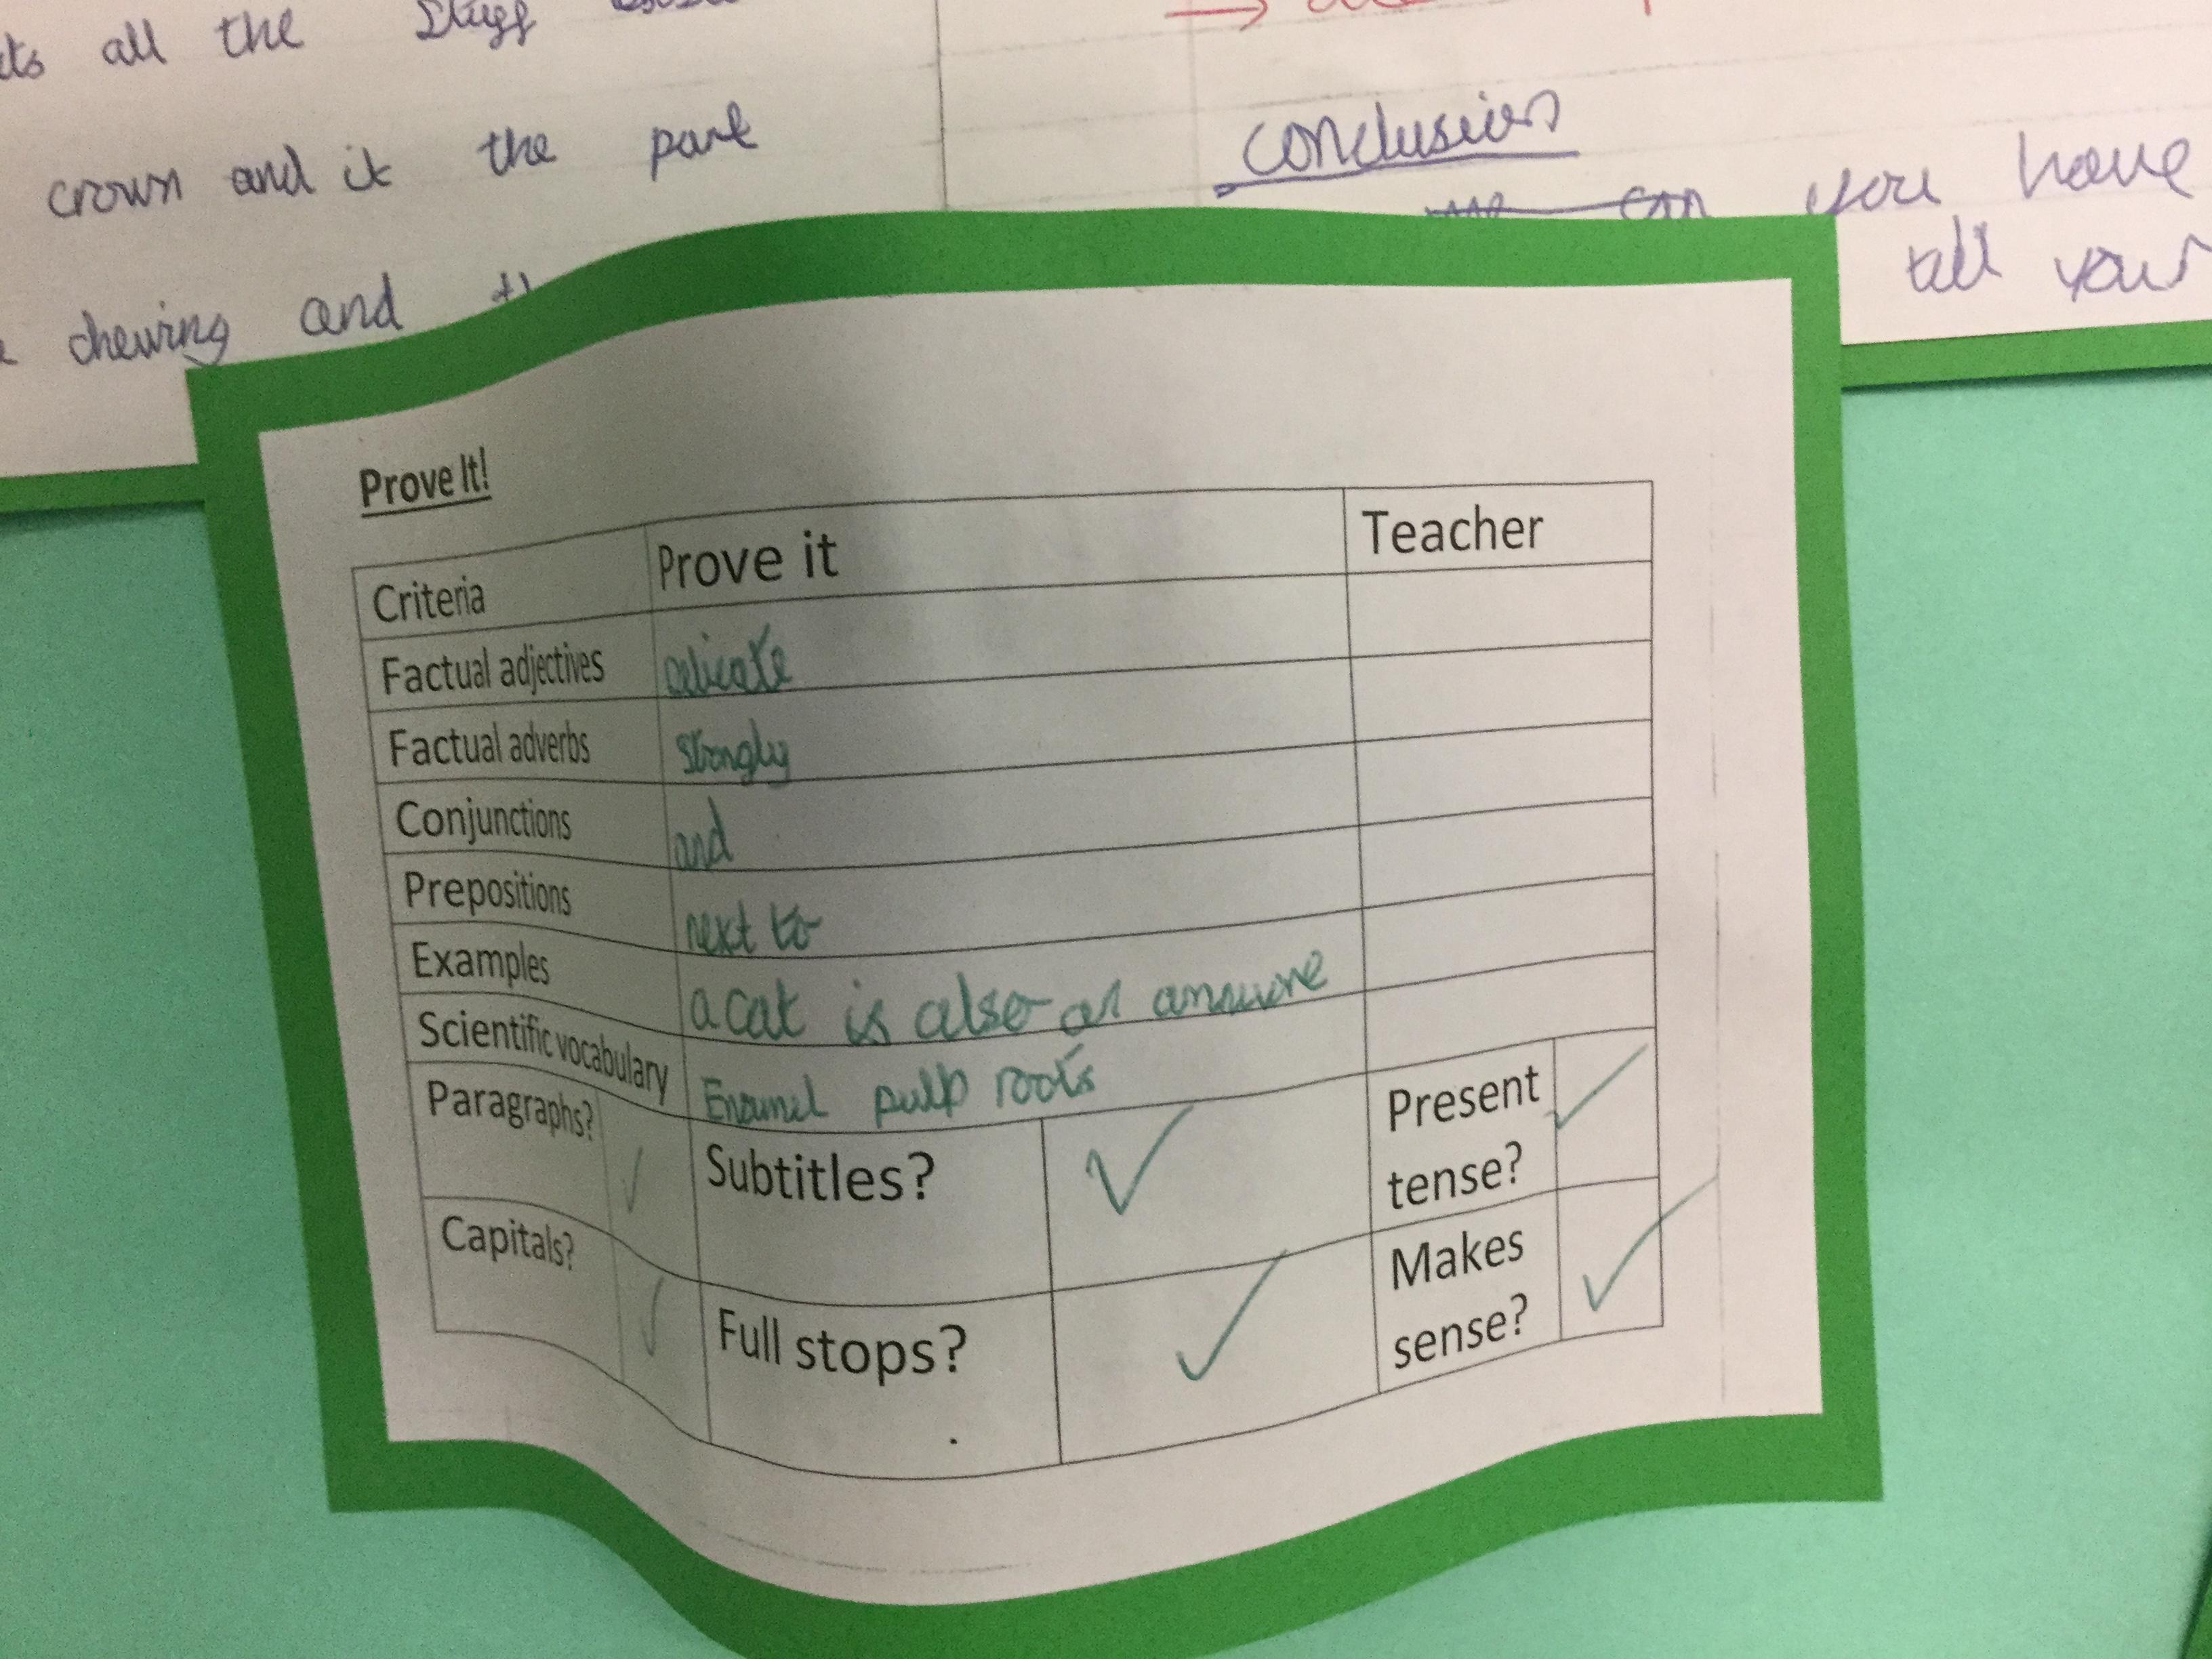 all the stuff
crown and it the part
chewing and
conclusion
can you have
tell your
Prove It!
Criteria Prove it Teacher
Factual adjectives delicate
Factual adverbs strongly
Conjunctions and
Prepositions next to
Examples a cat is also
Scientific vocabulary Enamel pulp roots
Paragraphs? ✓ Subtitles? ✓ Present tense? ✓
Capitals? ✓ Full stops? ✓ Makes sense? ✓